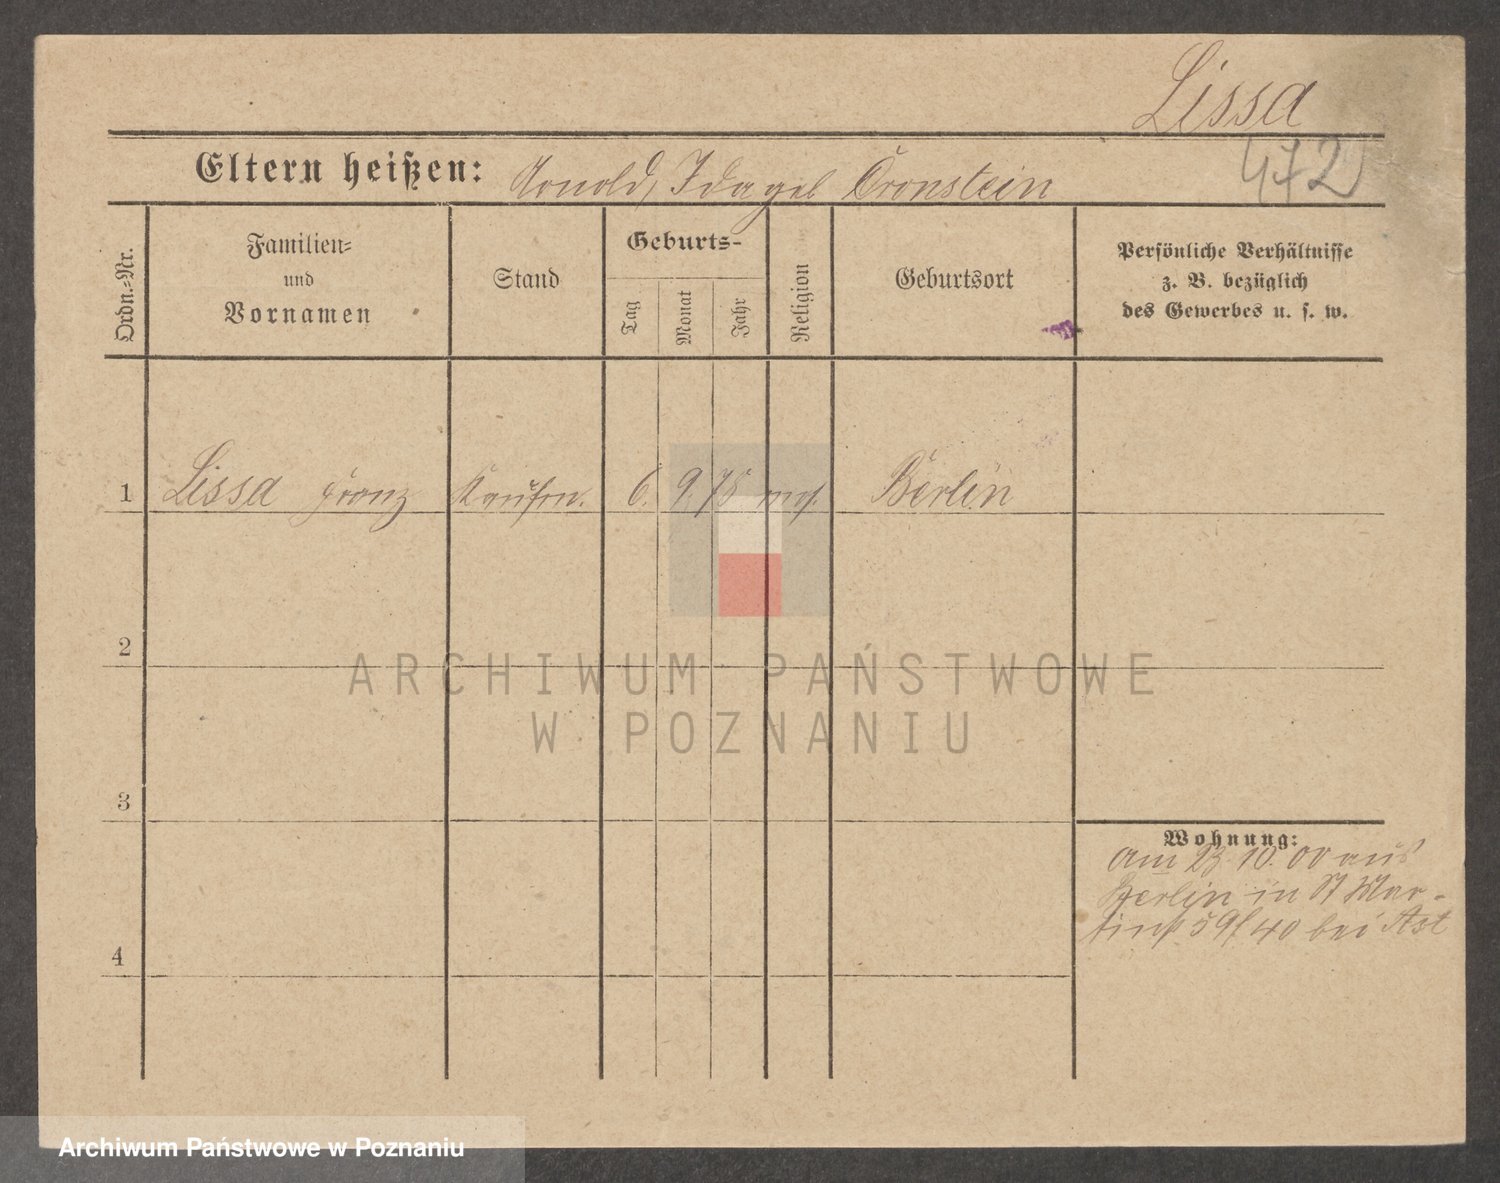 Lissa
Eltern heißen: Arnold, Ida geb Cronstein
472
Ordn.-Nr.
Familien-
und
Vornamen
Stand
Geburts-
Tag
Monat
Jahr
Religion
Geburtsort
Persönliche Verhältnisse
z. B. bezüglich
des Gewerbes u. s. w.
1 Lissa Franz Kaufm. 6. 9. 75 Berlin
2
ARCHIWUM PAŃSTWOWE
W POZNANIU
3
Wohnung:
am 23. 10. 00 aus
Berlin in St Mar-
tinstr 59/40 bei Ast
4
Archiwum Państwowe w Poznaniu